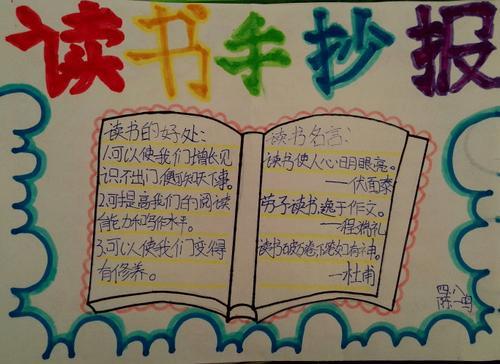 读书手抄报
读书的好处:
1.可以使我们增长见
识,不出门,便知天下事。
2.可提高我们的阅读
能力和写作水平。
3.可以使我们变得
有修养。
读书名言:
读书使人心明眼亮。
——伏尔泰
劳于读书,逸于作文。
——程端礼
读书破万卷,下笔如有神。
——杜甫
四.八
陈一鸣